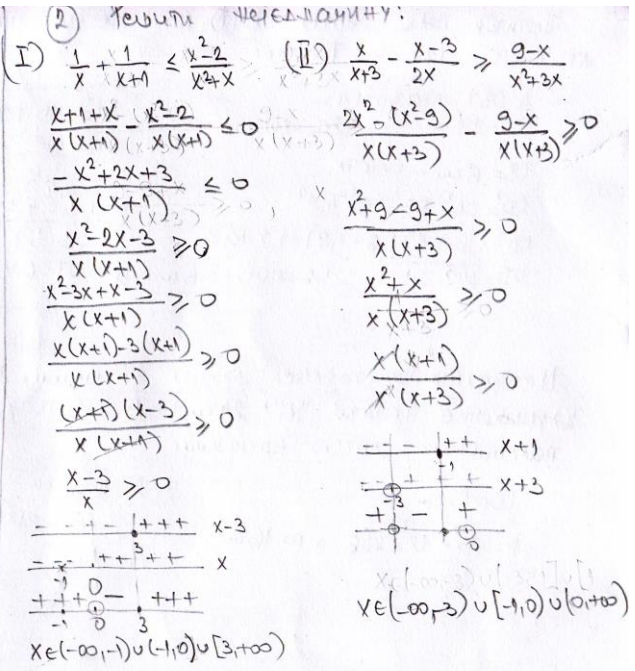 (2) Решити неједначину:
(I) 1/x + 1/(x+1) ≤ (x²-2)/(x²+x)
(x+1+x)/(x(x+1)) - (x²-2)/(x(x+1)) ≤ 0
(-x²+2x+3)/(x(x+1)) ≤ 0
(x²-2x-3)/(x(x+1)) ≥ 0
(x²-3x+x-3)/(x(x+1)) ≥ 0
(x(x+1)-3(x+1))/(x(x+1)) ≥ 0
((x+1)(x-3))/(x(x+1)) ≥ 0
(x-3)/x ≥ 0
- - - - + + + x-3
3
- - + + + + + x
-1 0
+ + + - + + +
-1 0 3
x∈(-∞,-1)∪(-1,0)∪[3,+∞)
(II) x/(x+3) - (x-3)/(2x) ≥ (9-x)/(x²+3x)
(2x²-(x²-9))/(x(x+3)) - (9-x)/(x(x+3)) ≥ 0
(x²+9-9+x)/(x(x+3)) ≥ 0
(x²+x)/(x(x+3)) ≥ 0
(x(x+1))/(x(x+3)) ≥ 0
- - - + + x+1
-1
- - + + + x+3
-3
+ - +
0
x∈(-∞,-3)∪[-1,0)∪(0,+∞)